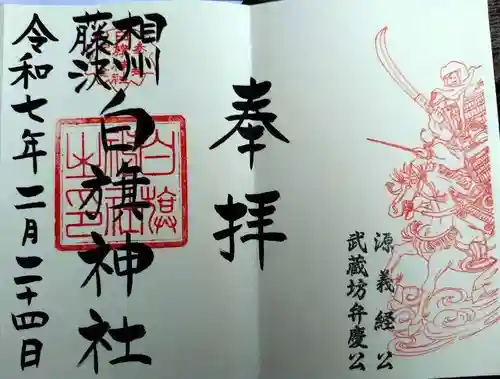 源義経公
武蔵坊弁慶公
奉拝
相州
藤沢
白旗神社
令和七年二月二十四日